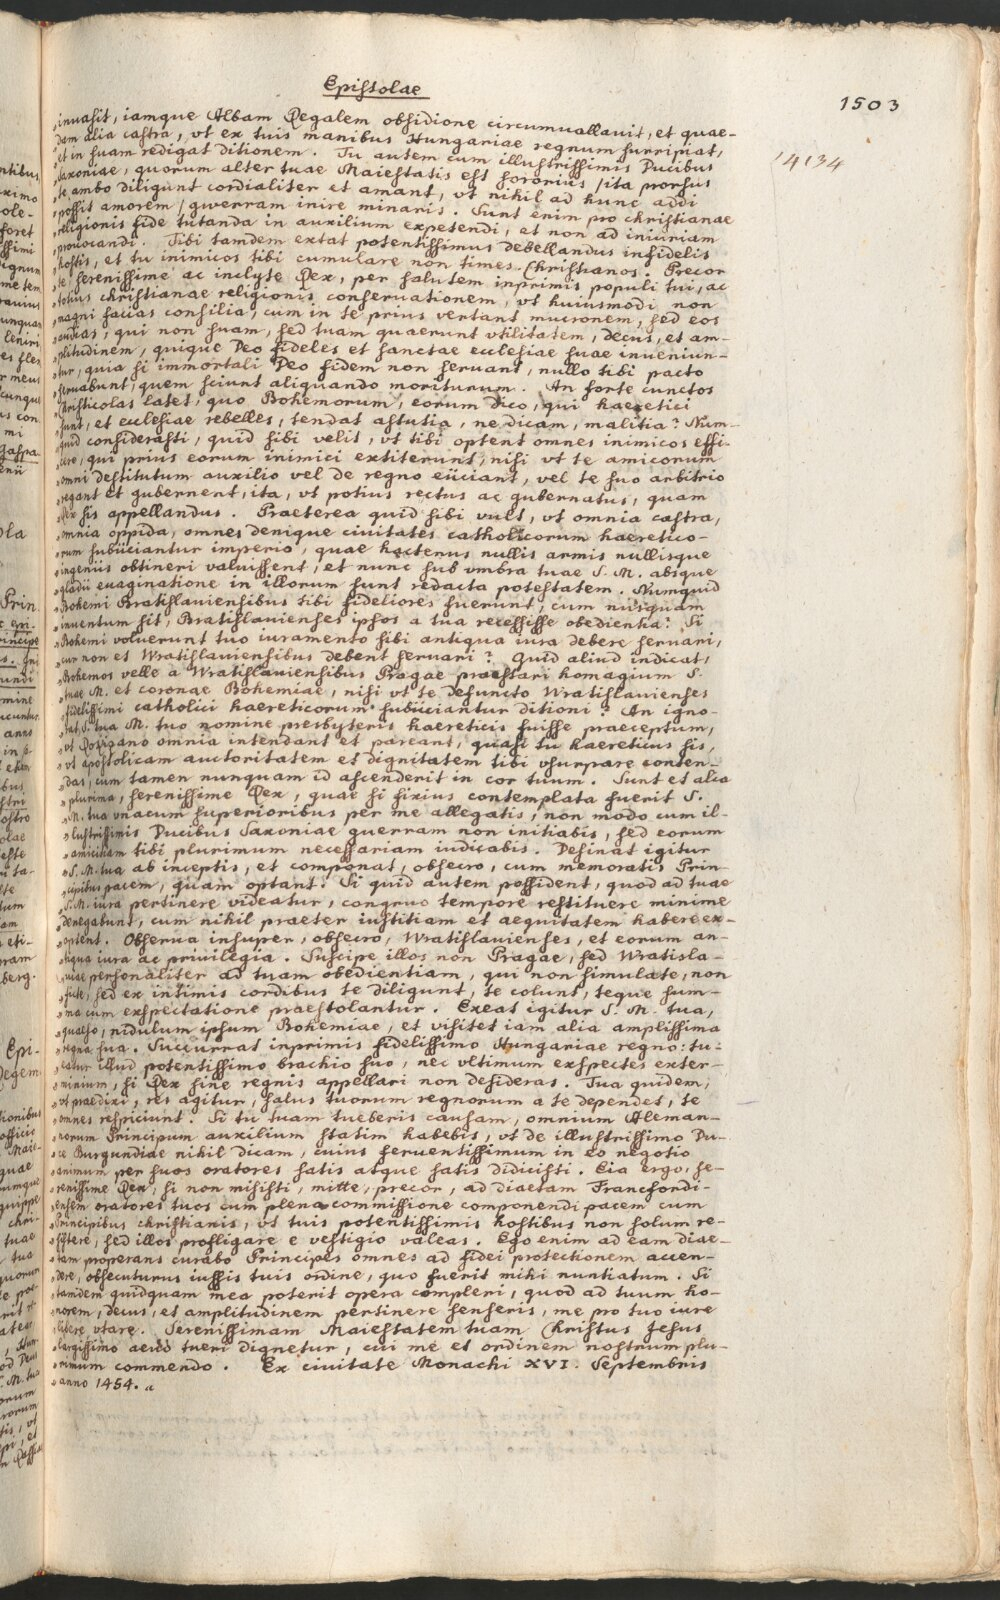 Epistolae
1503
14134
„inuasit, iamque Albam Regalem obsidione circumuallauit, et quae-
„dam alia castra, vt ex tuis manibus Hungariae regnum surripiat,
„et in suam redigat ditionem. Tu autem cum illustrissimis Ducibus
„Saxoniae, quorum alter tuae Maiestatis est sororius, ita prorsus
„te ambo diligunt cordialiter et amant, vt nihil ad hunc addi
„possit amorem, gwerram inire minaris. Sunt enim pro christianae
„religionis fide tutanda in auxilium expetendi, et non ad iniuriam
„prouocandi. Tibi tamdem extat potentissimus debellandus infidelis
„hostis, et tu inimicos tibi cumulare non times Christianos. Precor
„te serenissime ac inclyte Rex, per salutem inprimis populi tui, ac
„totius christianae religionis conseruationem, vt huiusmodi non
„magni facias consilia, cum in te prius vertant mucronem, sed eos
„audias, qui non suam, sed tuam quaerunt vtilitatem, decus, et am-
„plitudinem, quique Deo fideles et sanctae ecclesiae suae inueniun-
„tur, quia si immortali Deo fidem non seruant, nullo tibi pacto
„seruabunt, quem sciunt aliquando moriturum. An forte cunctos
„Christicolas latet, quo Bohemorum, eorum dico, qui haeretici
„sunt, et ecclesiae rebelles, tendat astutia, ne dicam, malitia? Num-
„quid considerasti, quid sibi velit, vt tibi optent omnes inimicos effi-
„cere, qui prius eorum inimici extiterunt, nisi vt te amicorum
„omni destitutum auxilio vel de regno eiiciant, vel te suo arbitrio
„regant et gubernent, ita, vt potius rectus ac gubernatus, quam
„Rex sis appellandus. Praeterea quid sibi vult, vt omnia castra,
„omnia oppida, omnes denique ciuitates catholicorum haeretico-
„rum subiiciantur imperio, quae hactenus nullis armis nullisque
„ingeniis obtineri valuissent, et nunc sub vmbra tuae S. M. absque
„gladii euaginatione in illorum sunt redacta potestatem. Numquid
„Bohemi Bratislauiensibus tibi fideliores fuerunt, cum nusquam
„inuentum sit, Bratislauienses ipsos a tua recessisse obedientia? Si
„Bohemi voluerunt tuo iuramento sibi antiqua iura debere seruari,
„cur non et Wratislauiensibus debent seruari? Quid aliud indicat,
„Bohemos velle a Wratislauiensibus Pragae praestari homagium S.
„tuae M. et coronae Bohemiae, nisi vt te defuncto Wratislauienses
„fidelissimi catholici haereticorum subiiciantur ditioni? An igno-
„rat, S. tua M. tuo nomine presbyteris haereticis fuisse praeceptum,
„vt Roxizano omnia intendant et pareant, quasi tu haereticus sis,
„vt apostolicam auctoritatem et dignitatem tibi vsurpare conten-
„das, cum tamen nunquam id ascenderit in cor tuum. Sunt et alia
„plurima, serenissime Rex, quae si fixius contemplata fuerit S.
„M. tua vnacum superioribus per me allegatis, non modo cum il-
„lustrissimis Ducibus Saxoniae guerram non initiabis, sed eorum
„amicitiam tibi plurimum necessariam iudicabis. Desinat igitur
„S. M. tua ab inceptis, et componat, obsecro, cum memoratis Prin-
„cipibus pacem, quam optant. Si quid autem possident, quod ad tuae
„S. M. iura pertinere videatur, congruo tempore restituere minime
„denegabunt, cum nihil praeter iustitiam et aequitatem habere ex-
„optent. Obserua insuper, obsecro, Wratislauienses, et eorum an-
„tiqua iura ac priuilegia. Suscipe illos non Pragae, sed Wratisla-
„uiae personaliter ad tuam obedientiam, qui non simulate, non
„ficte, sed ex intimis cordibus te diligunt, te colunt, teque sum-
„ma cum exspectatione praestolantur. Exeat igitur S. M. tua,
„quaeso, nidulum ipsum Bohemiae, et visitet iam alia amplissima
„regna sua. Succurrat inprimis fidelissimo Hungariae regno: tu-
„eatur illud potentissimo brachio suo, nec vltimum exspectes exter-
„minium, si Rex sine regnis appellari non desideras. Tua quidem,
„vt praedixi, res agitur, salus tuorum regnorum a te dependet, te
„omnes respiciunt. Si tu tuam tueberis causam, omnium Aleman-
„norum Principum auxilium statim habebis, vt de illustrissimo Du-
„ce Burgundiae nihil dicam, cuius feruentissimum in eo negotio
„animum per suos oratores satis atque satis didicisti. Eia ergo, se-
„renissime Rex, si non misisti, mitte, precor, ad diaetam Francfordi-
„ensem oratores tuos cum plena commissione componendi pacem cum
„Principibus christianis, vt tuis potentissimis hostibus non solum re-
„sistere, sed illos profligare e vestigio valeas. Ego enim ad eam diae-
„tam properans curabo Principes omnes ad fidei protectionem accen-
„dere, obsecuturus iussis tuis ordine, quo fuerit mihi nuntiatum. Si
„tamdem quidquam mea poterit opera compleri, quod ad tuum ho-
„norem, decus, et amplitudinem pertinere senseris, me pro tuo iure
„libere vtare. Serenissimam Maiestatem tuam Christus Jesus
„largissimo aeuo tueri dignetur, cui me et ordinem nostrum plu-
„rimum commendo. Ex ciuitate Monachi XVI. Septembris
„anno 1454.„